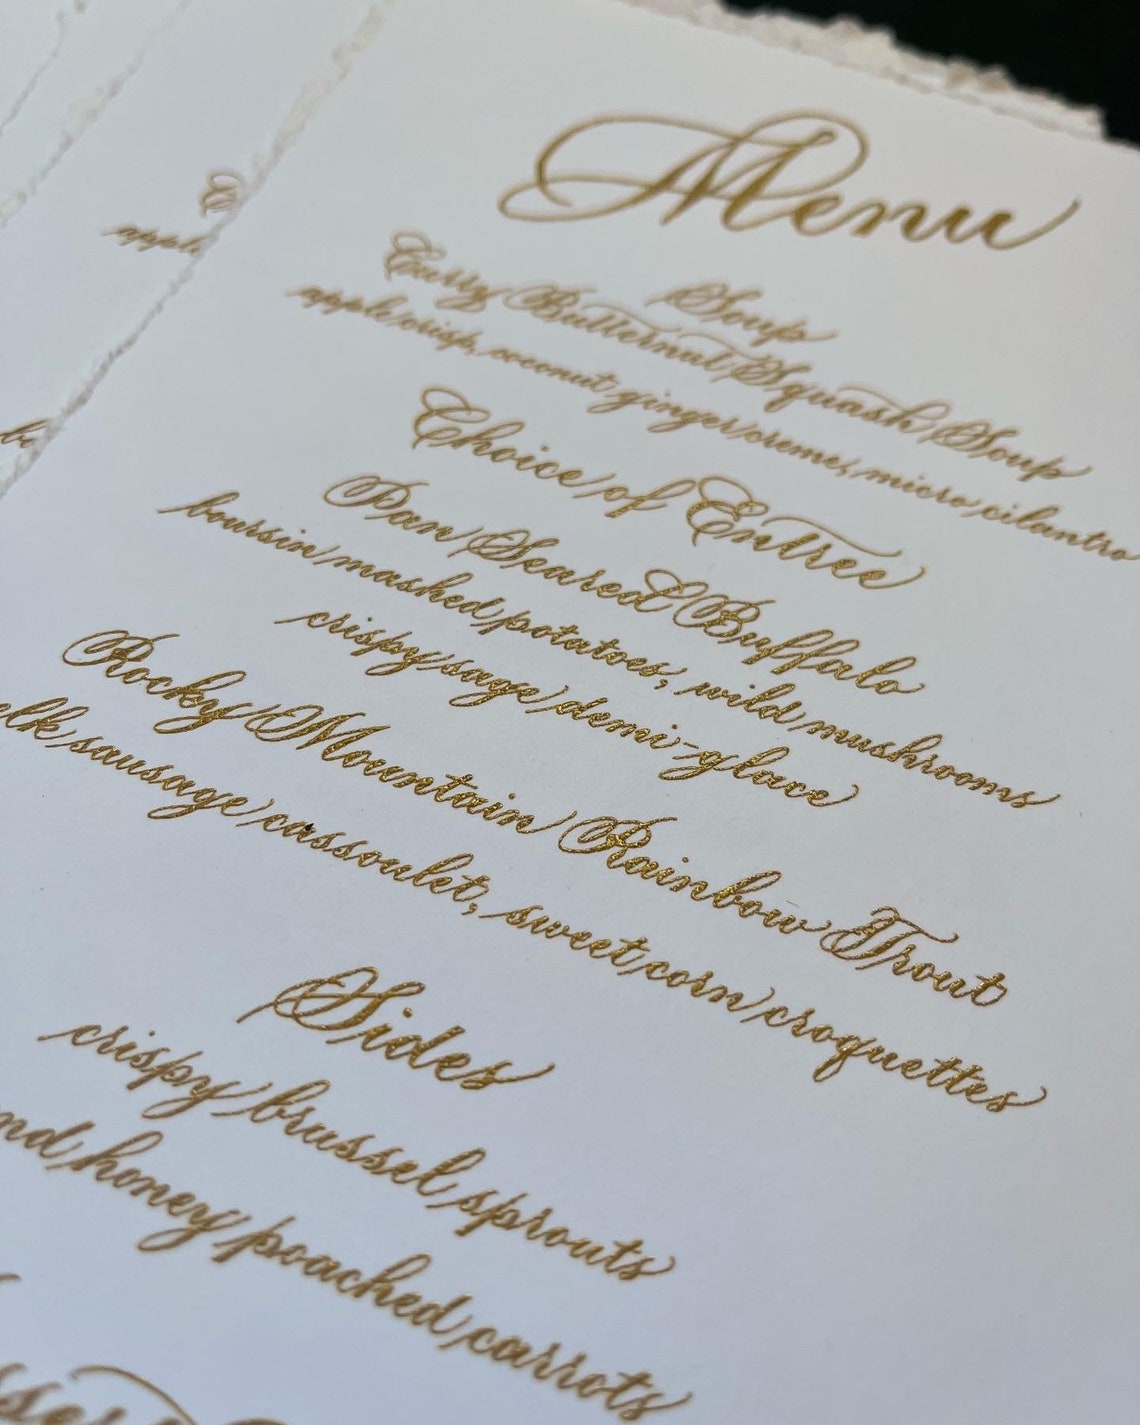 Menu
Soup
Curry Butternut Squash Soup
apple crisp, coconut ginger creme, micro cilantro
Choice of Entree
Pan Seared Buffalo
boursin mashed potatoes, wild mushrooms
crispy sage demi-glace
Rocky Mountain Rainbow Trout
elk sausage cassoulet, sweet corn croquettes
Sides
crispy brussel sprouts
honey poached carrots
apple